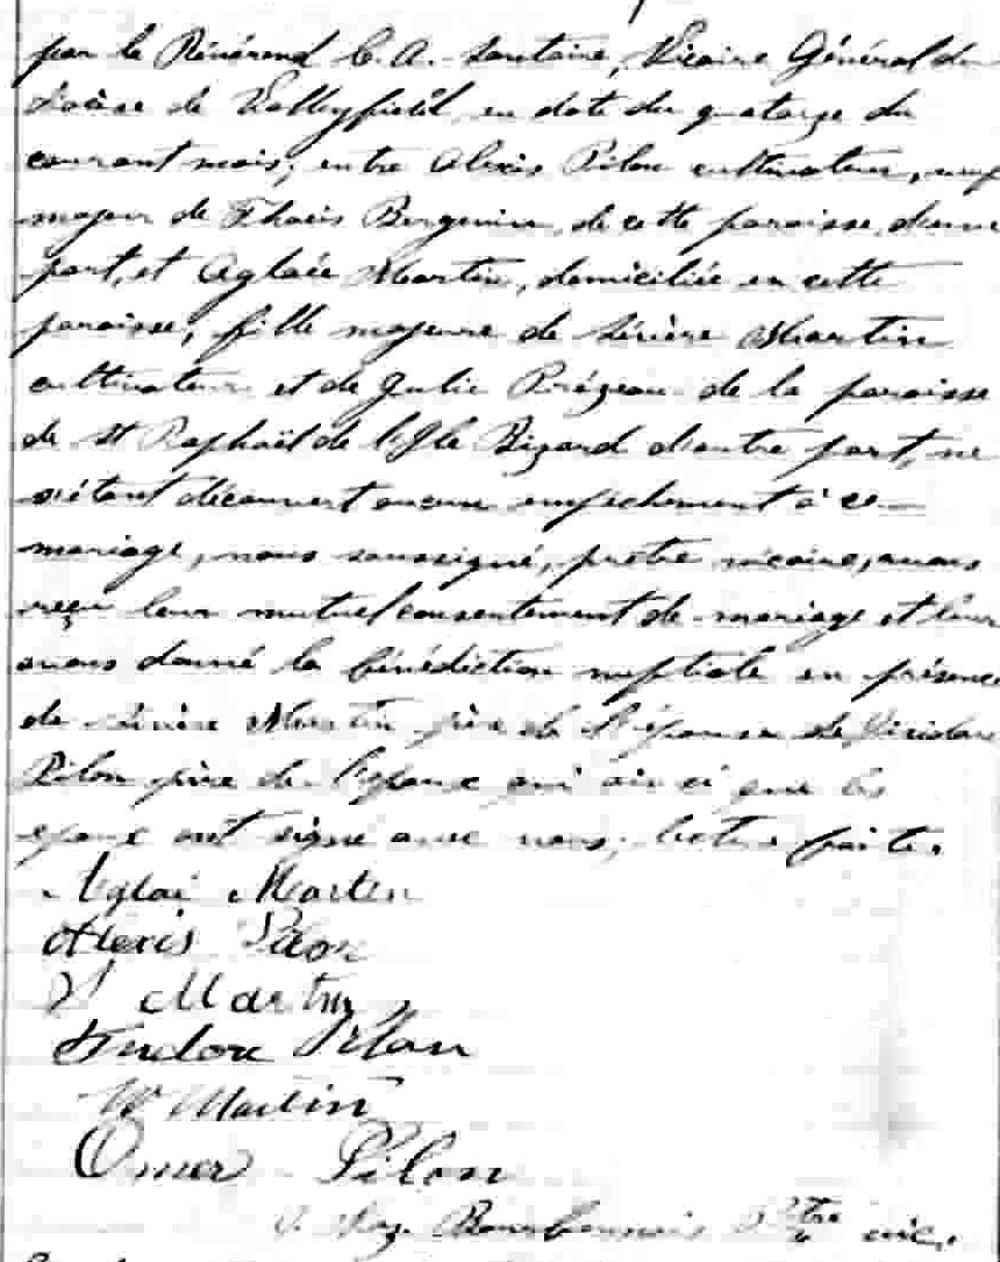 par le Révérend C. A. Santoire, Vicaire Général du
diocèse de Valleyfield en date du quatorze du
courant mois, entre Alexis Pilon cultivateur, veuf
majeur de Thaïs Bergevin, de cette paroisse, d'une
part, et Aglaée Martin, domiciliée en cette
paroisse, fille majeure de Sévère Martin
cultivateur et de Julie Prégeau de la paroisse
de St Raphaël de l'Ile Bizard d'autre part, ne
s'étant découvert aucun empêchement à ce
mariage, nous soussigné, prêtre vicaire, avons
reçu leur mutuel consentement de mariage et leur
avons donné la bénédiction nuptiale en présence
de Sévère Martin père de l'épouse de
Pilon père de l'époux qui ainsi que les
époux ont signé avec nous, lecture faite.
Aglaé Martin
Alexis Pilon
S Martin
Pilon
W Martin
Omer Pilon
Bourbonnais Ptre vic.